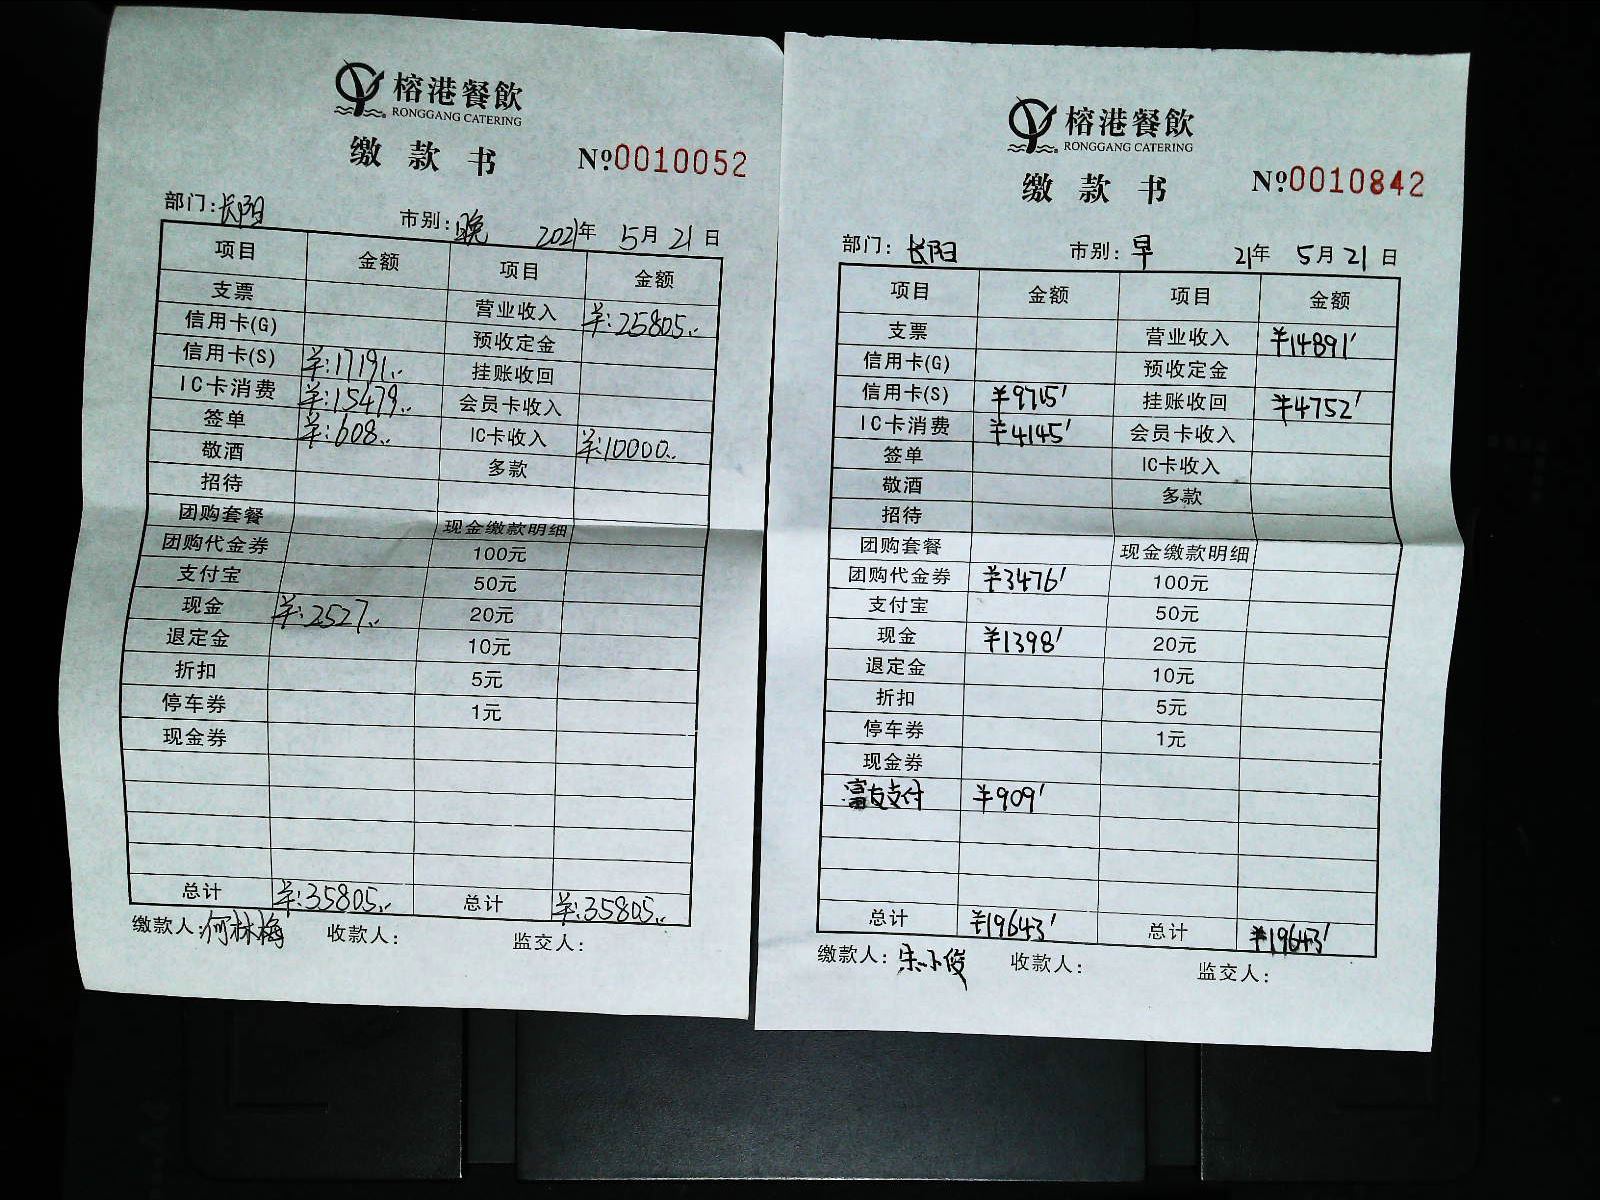 榕港餐飲
RONGGANG CATERING
缴款书 №0010052
部门:长阳 市别:晚 2021年5月21日
项目 金额 项目 金额
支票 营业收入 ¥:25805.
信用卡(G) 预收定金
信用卡(S) ¥:17191. 挂账收回
IC卡消费 ¥:15479. 会员卡收入
签单 ¥:608. IC卡收入 ¥:10000.
敬酒 多款
招待
团购套餐 现金缴款明细
团购代金券 100元
支付宝 50元
现金 ¥:2527. 20元
退定金 10元
折扣 5元
停车券 1元
现金券
总计 ¥:35805. 总计 ¥:35805.
缴款人:何林梅 收款人: 监交人:
榕港餐飲
RONGGANG CATERING
缴款书 №0010842
部门:长阳 市别:早 21年5月21日
项目 金额 项目 金额
支票 营业收入 ¥14891'
信用卡(G) 预收定金
信用卡(S) ¥9715' 挂账收回 ¥4752'
IC卡消费 ¥4145' 会员卡收入
签单 IC卡收入
敬酒 多款
招待
团购套餐 现金缴款明细
团购代金券 ¥3476' 100元
支付宝 50元
现金 ¥1398' 20元
退定金 10元
折扣 5元
停车券 1元
现金券
富友支付 ¥909'
总计 ¥19643' 总计 ¥19643'
缴款人: 收款人: 监交人: